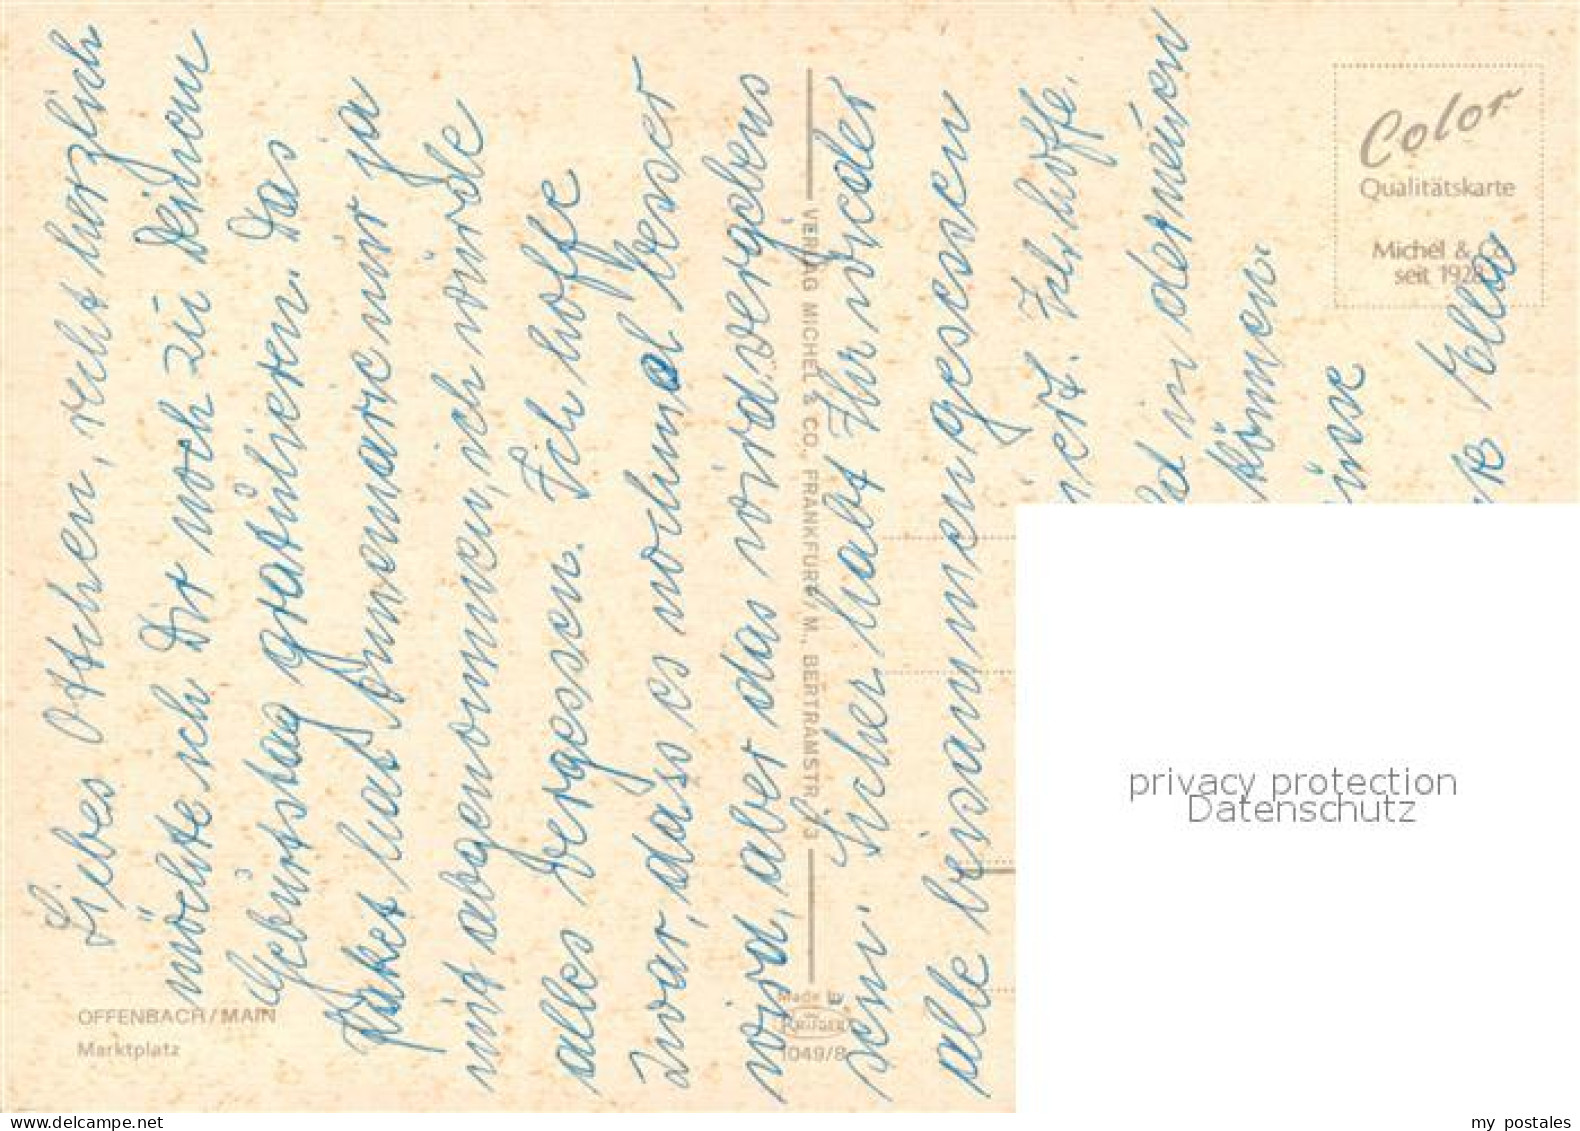 Liebes Ottchen, recht herzlich
möchte ich Dir noch zu Deinem
Geburtstag gratulieren. Das
Paket hat Annemarie mir ja
mit abgenommen, ich würde
alles vergessen. Ich hoffe
zwar, dass es nochmal besser
wird, aber das wird vergebens
sein. Sicher habt Ihr wieder
alle beisammengesessen
Ich hoffe.
in der neuen
können.
OFFENBACH/MAIN
Marktplatz
VERLAG MICHEL & CO., FRANKFURT/M., BERTRAMSTR.
Made by
KRÜGER
1049/8
Color
Qualitätskarte
Michel & Co
seit 1928
privacy protection
Datenschutz
my postales